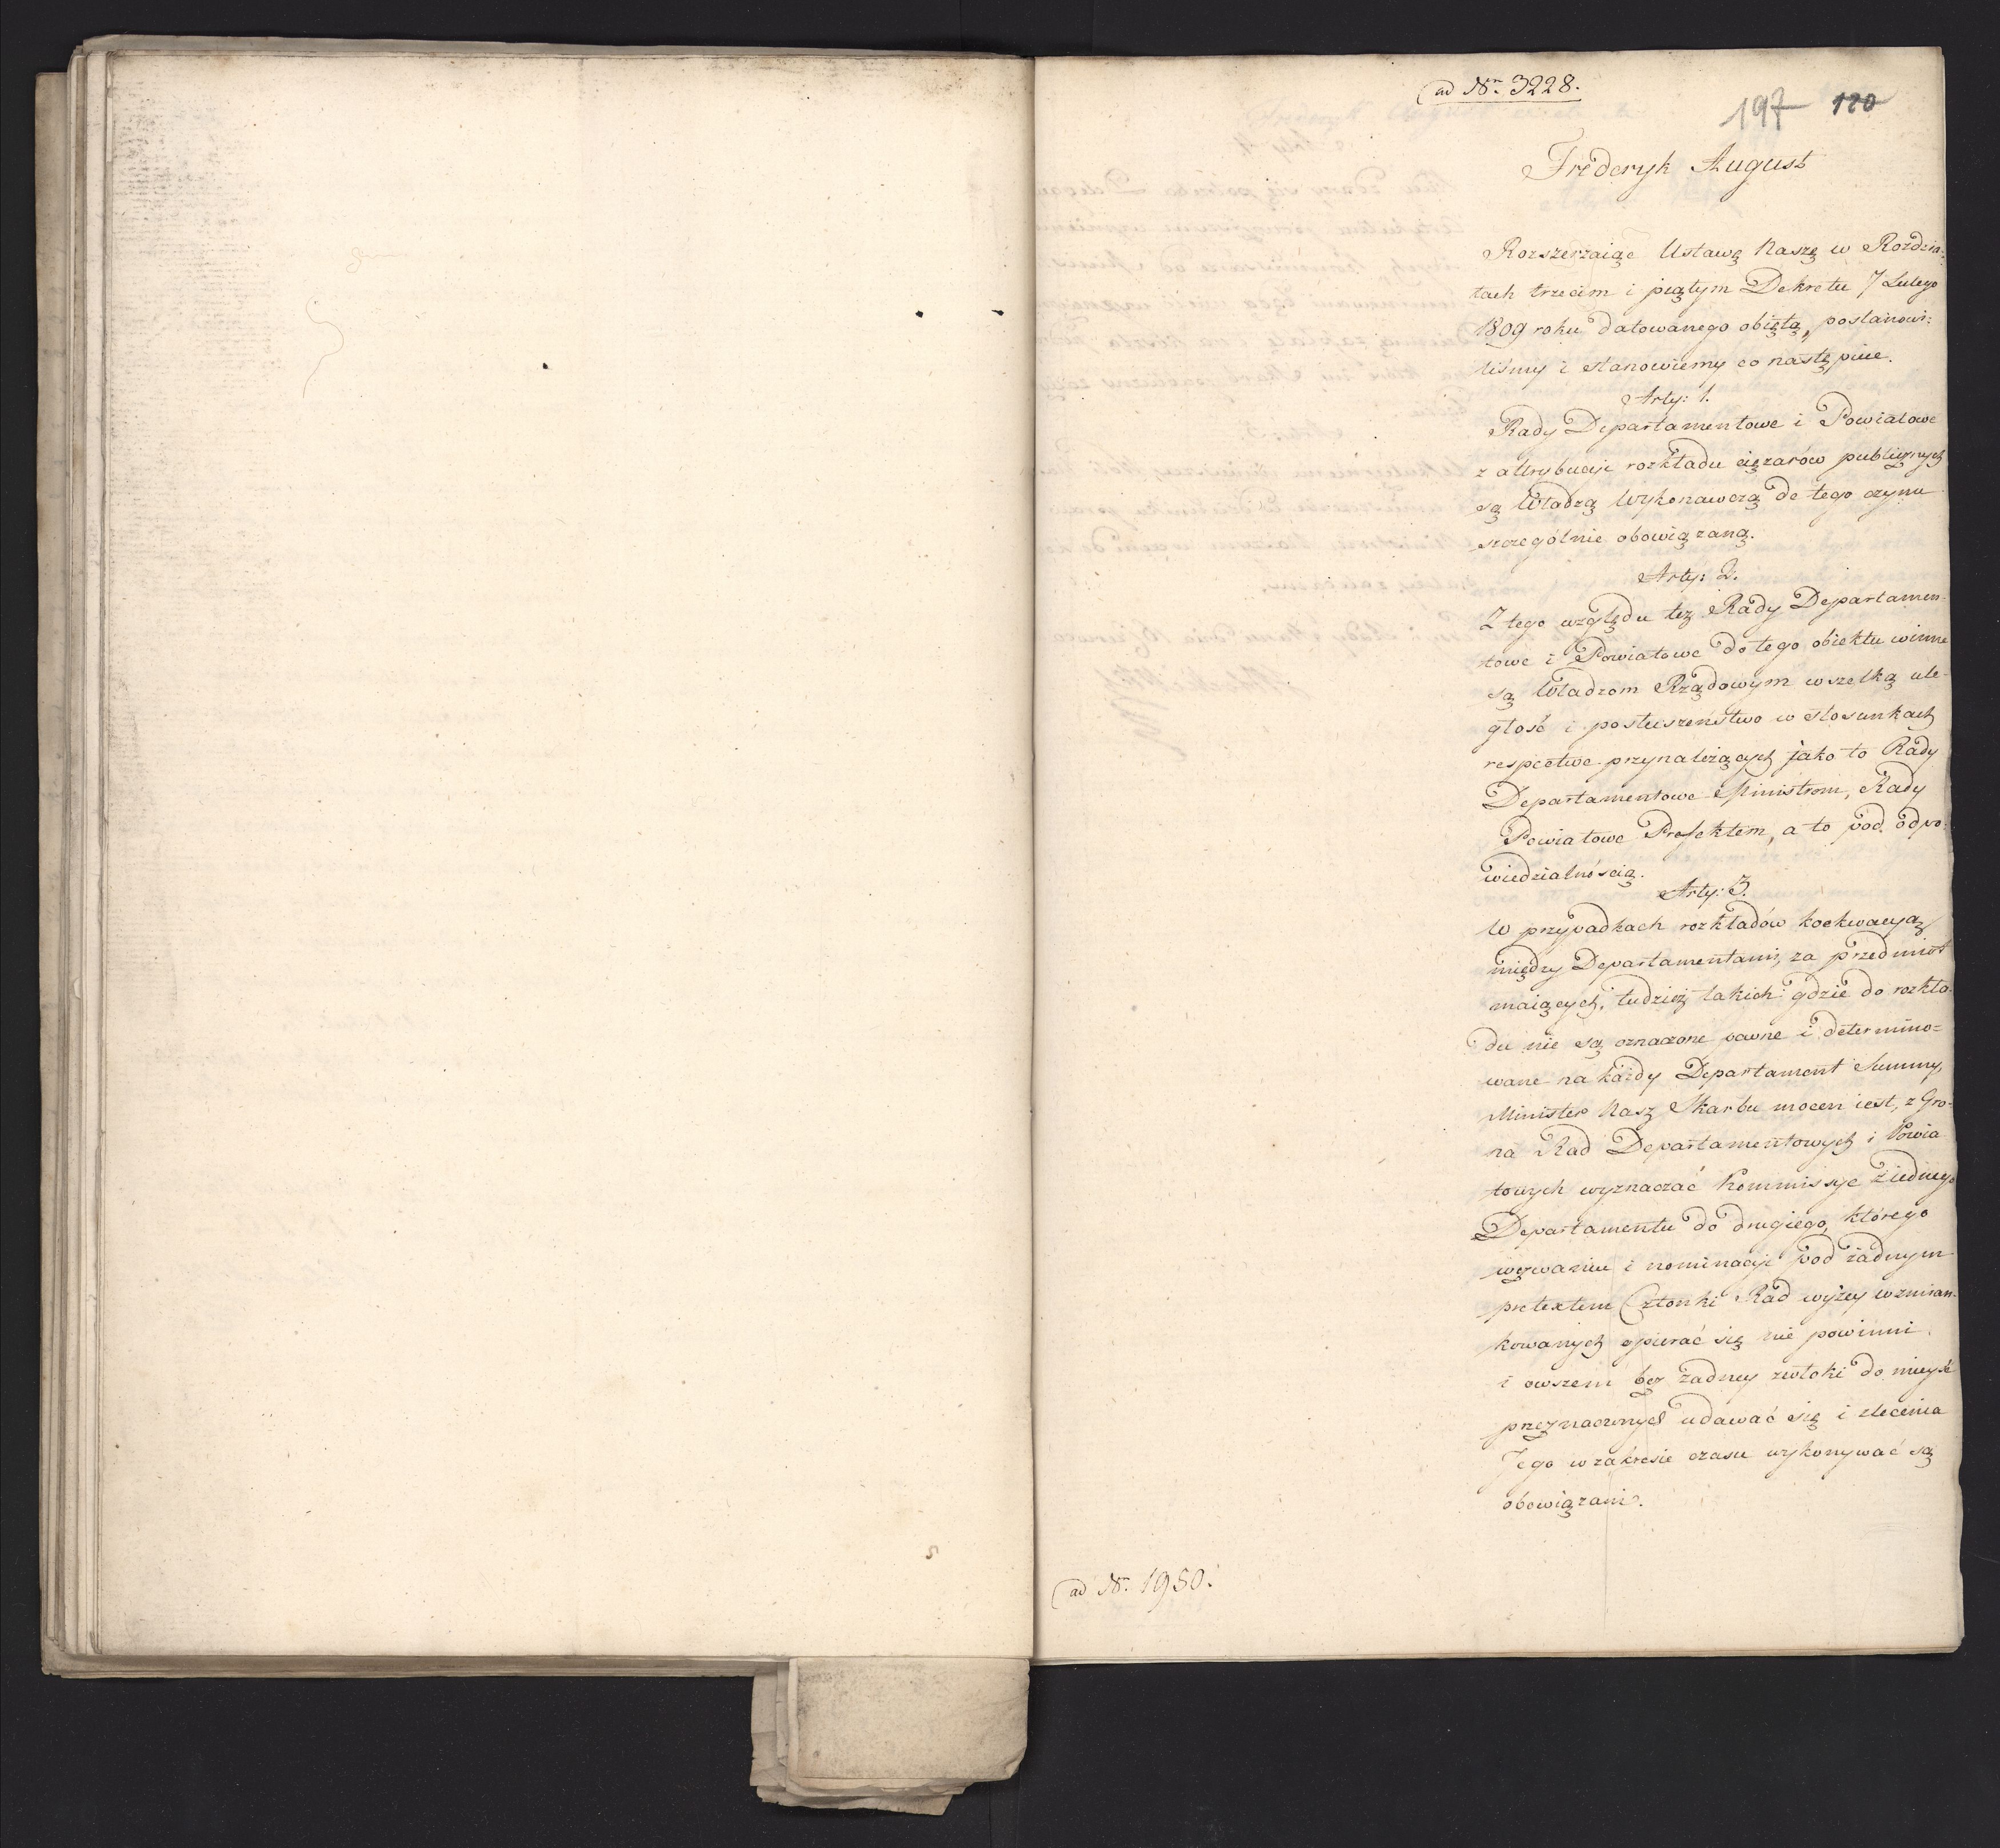 ad Nr. 3228.
197 120
Fryderyk August
Rozszerzaiąc Ustawę Naszę w Rozdzia-
łach trzecim i piątym Dekretu 7 Lutego
1809 roku datowanego obiętą, postanowi-
liśmy i stanowiemy co następuie.
Arty: 1.
Rady Departamentowe i Powiatowe
z attrybucyi rozkładu ciężarów publicznych
są Władzą Wykonawczą do tego czynu
szczególnie obowiązaną.
Arty: 2.
Z tego względu też Rady Departamen-
towe i Powiatowe do tego obiektu winne
są Władzom Rządowym wszelką ule-
głość i posłuszeństwo w stosunkach
respective przynależących jako to Rady
Departamentowe Ministrom, Rady
Powiatowe Prefektom, a to pod odpo-
wiedzialnością.
Arty: 3.
W przypadkach rozkładów koekwacyą
między Departamentami, za przedmiot
maiących, tudzież takich gdzie do rozkła-
du nie są oznaczone pewne i determino-
wane na każdy Departament Summy,
Minister Nasz Skarbu mocen iest, z Gro-
na Rad Departamentowych i Powia-
towych wyznaczać Kommissye z iednego
Departamentu do drugiego, którego
wezwaniu i nominacyi pod żadnym
pretextem Członki Rad wyżey wzmian-
kowanych opierać się nie powinni
i owszem bez żadney zwłoki do mieysc
przeznaczonych udawać się i zlecenia
Jego w zakresie czasu wykonywać są
obowiązani.
ad Nr. 1950.